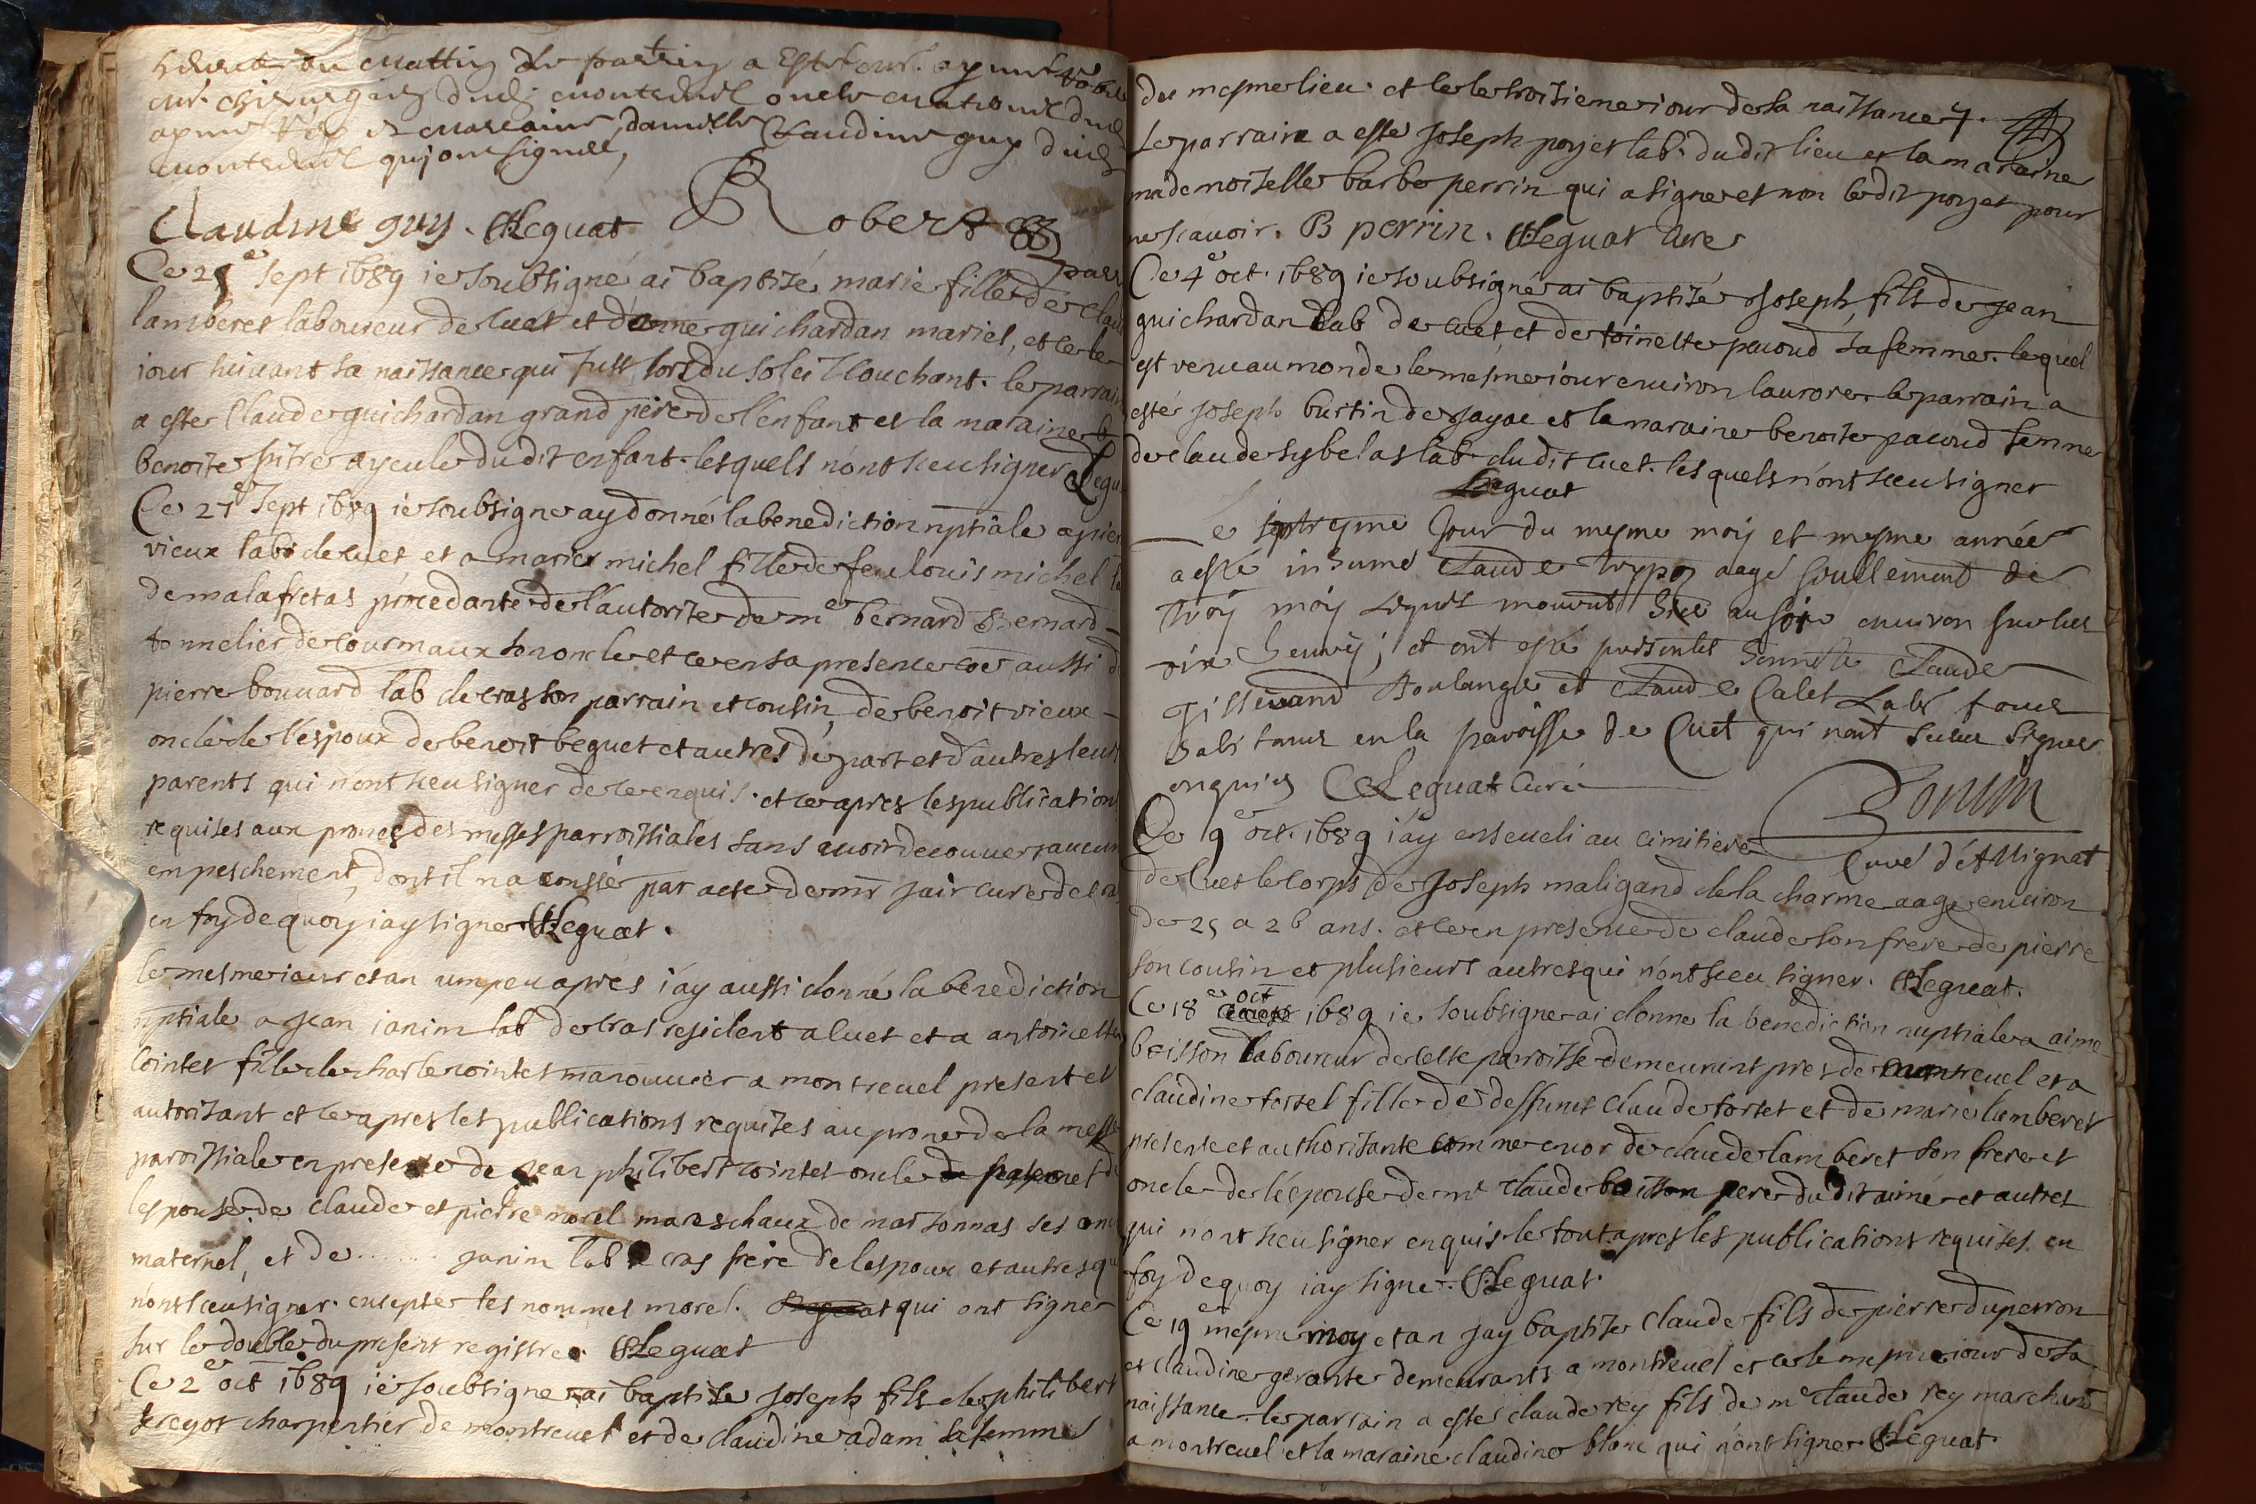 heures du mattin Le parrin a Este
cuont qui ont signéé,
Claudine guy. Leguat Robert
Ce 25e sept 1689 ie soubsigné ai baptizé marie fille de
lamberet laboureur de cuet et d' guichardan mariés, et ce le
iour suivant sa naissance qui fust lors du soleil couchant. le parrain
a esté Claude guichardan grand père de l'enfant et la maraine
benoite pitre ayeule dudit enfant. lesquels n'ont sceu signer
Ce 27e sept 1689 ie soubsigne ay donné la benediction nptiale a
vieux lab. de cuet et a marie michel fille de feu louis michel
de malafretas procedante de l'autorite de me bernard Bernard
tonnelier de courmaux son oncle et ce en sa presence aussi
pierre bouvard lab de cras son parrain et cousin, de benoit vieux
oncle de l'espoux de benoit beguet et autres de part et d'autres leurs
parents qui n'ont sceu signer de ce enquis. et ce apres les publications
requises aux prones des messes parroissiales sans avoir decouvert aucun
empeschement, par acte de mr curé de
en foy de quoy iay signe Leguat.
le mesme iour et an un peu apres i'ay aussi donné la benediction
nptiale a jean ianin lab de cras resident a cuet et a antoinette
cointet fille de charle cointet manouvrier a montrevel present et
autorisant et ce apres les publications requises au prone de la messe
paroissiale en presence de jean philibert cointet oncle
lespouse de claude et pierre morel mareschaux de marsonnas ses
maternel, et de ....... janin lab cras frere de lespoux et autres qui
n'ont sceu signer. excepter les nommes morel. qui ont signer
sur le double du present registre. Leguat
Ce 2e oct 1689 ie soubsigne ai baptize Joseph fils de philibert
charpentier de montrevel et de claudine adam sa femme
du mesme lieu. et ce le troisieme iour de sa naissance
Le parrain a esté Joseph poyet lab. dudit lieu et la maraine
mademoiselle barbe perrin qui a signe et non ledit poyet pour
ne scavoir. B perrin. Leguat cure
Ce 4e oct. 1689 ie soubsigné ai baptizé Joseph, fils de jean
guichardan lab de cuet, et de toinette pacoud sa femme. lequel
est venu au monde le mesme iour environ laurore le parrain a
esté joseph burtin de jayac et la maraine benoite pacoud femme
de claude sybelas lab. dudit cuet. lesquels n'ont sceu signer
Leguat
Le jour du mesme moy et mesme année
a esté inhumé Claude aagé seullement de
troy moy Lequel mourut hier au soir environ sur les
six heures; et ont esté presentes honneste Claude
boulanger et Claude Calet Labr tous
habitans en la paroisse de Cuet qui n'ont sceu signer
enquis Leguat Curé
Bonin
Curé d'Attignat
Ce 9e oct. 1689 i'ay enseveli au cimitiere
de Cuet le corps de Joseph maligand de la charme aage environ
de 25 a 26 ans. et ce en presence de claude son frere de pierre
son cousin et plusieurs autres qui n'ont sceu signer. Leguat.
Ce 18e oct 1689 ie soubsigne ai donne la benediction nuptiale a aimé
boisson laboureur de cette paroisse demeurant pres de montrevel et a
claudine fortet fille de deffunct claude fortet et de marie lamberet
presente et authorisante comme encor de claude lamberet son frere et
oncle de lespouse de mr claude boisson pere dudit aimé et autres
qui n'ont sceu signer enquis le tout apres les publications requises en
foy de quoy iay signe. Leguat.
Ce 19e mesme moy et an jay baptize Claude fils de pierre duperron
et claudine gerante demeurants a montrevel et ce le mesme iour de sa
naissance. le parrain a esté claude rey fils de me claude rey marchand
a montrevel et la maraine claudine blanc qui n'ont signe. Leguat.